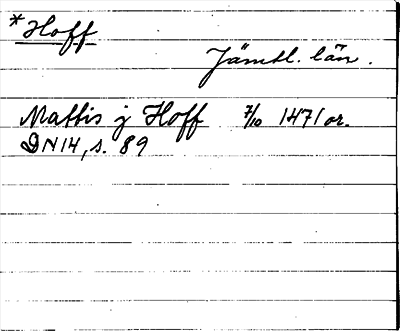 *Hoff
Jämtl. län.
Mattis j Hoff 7/10 1471 or.
DN14, s. 89